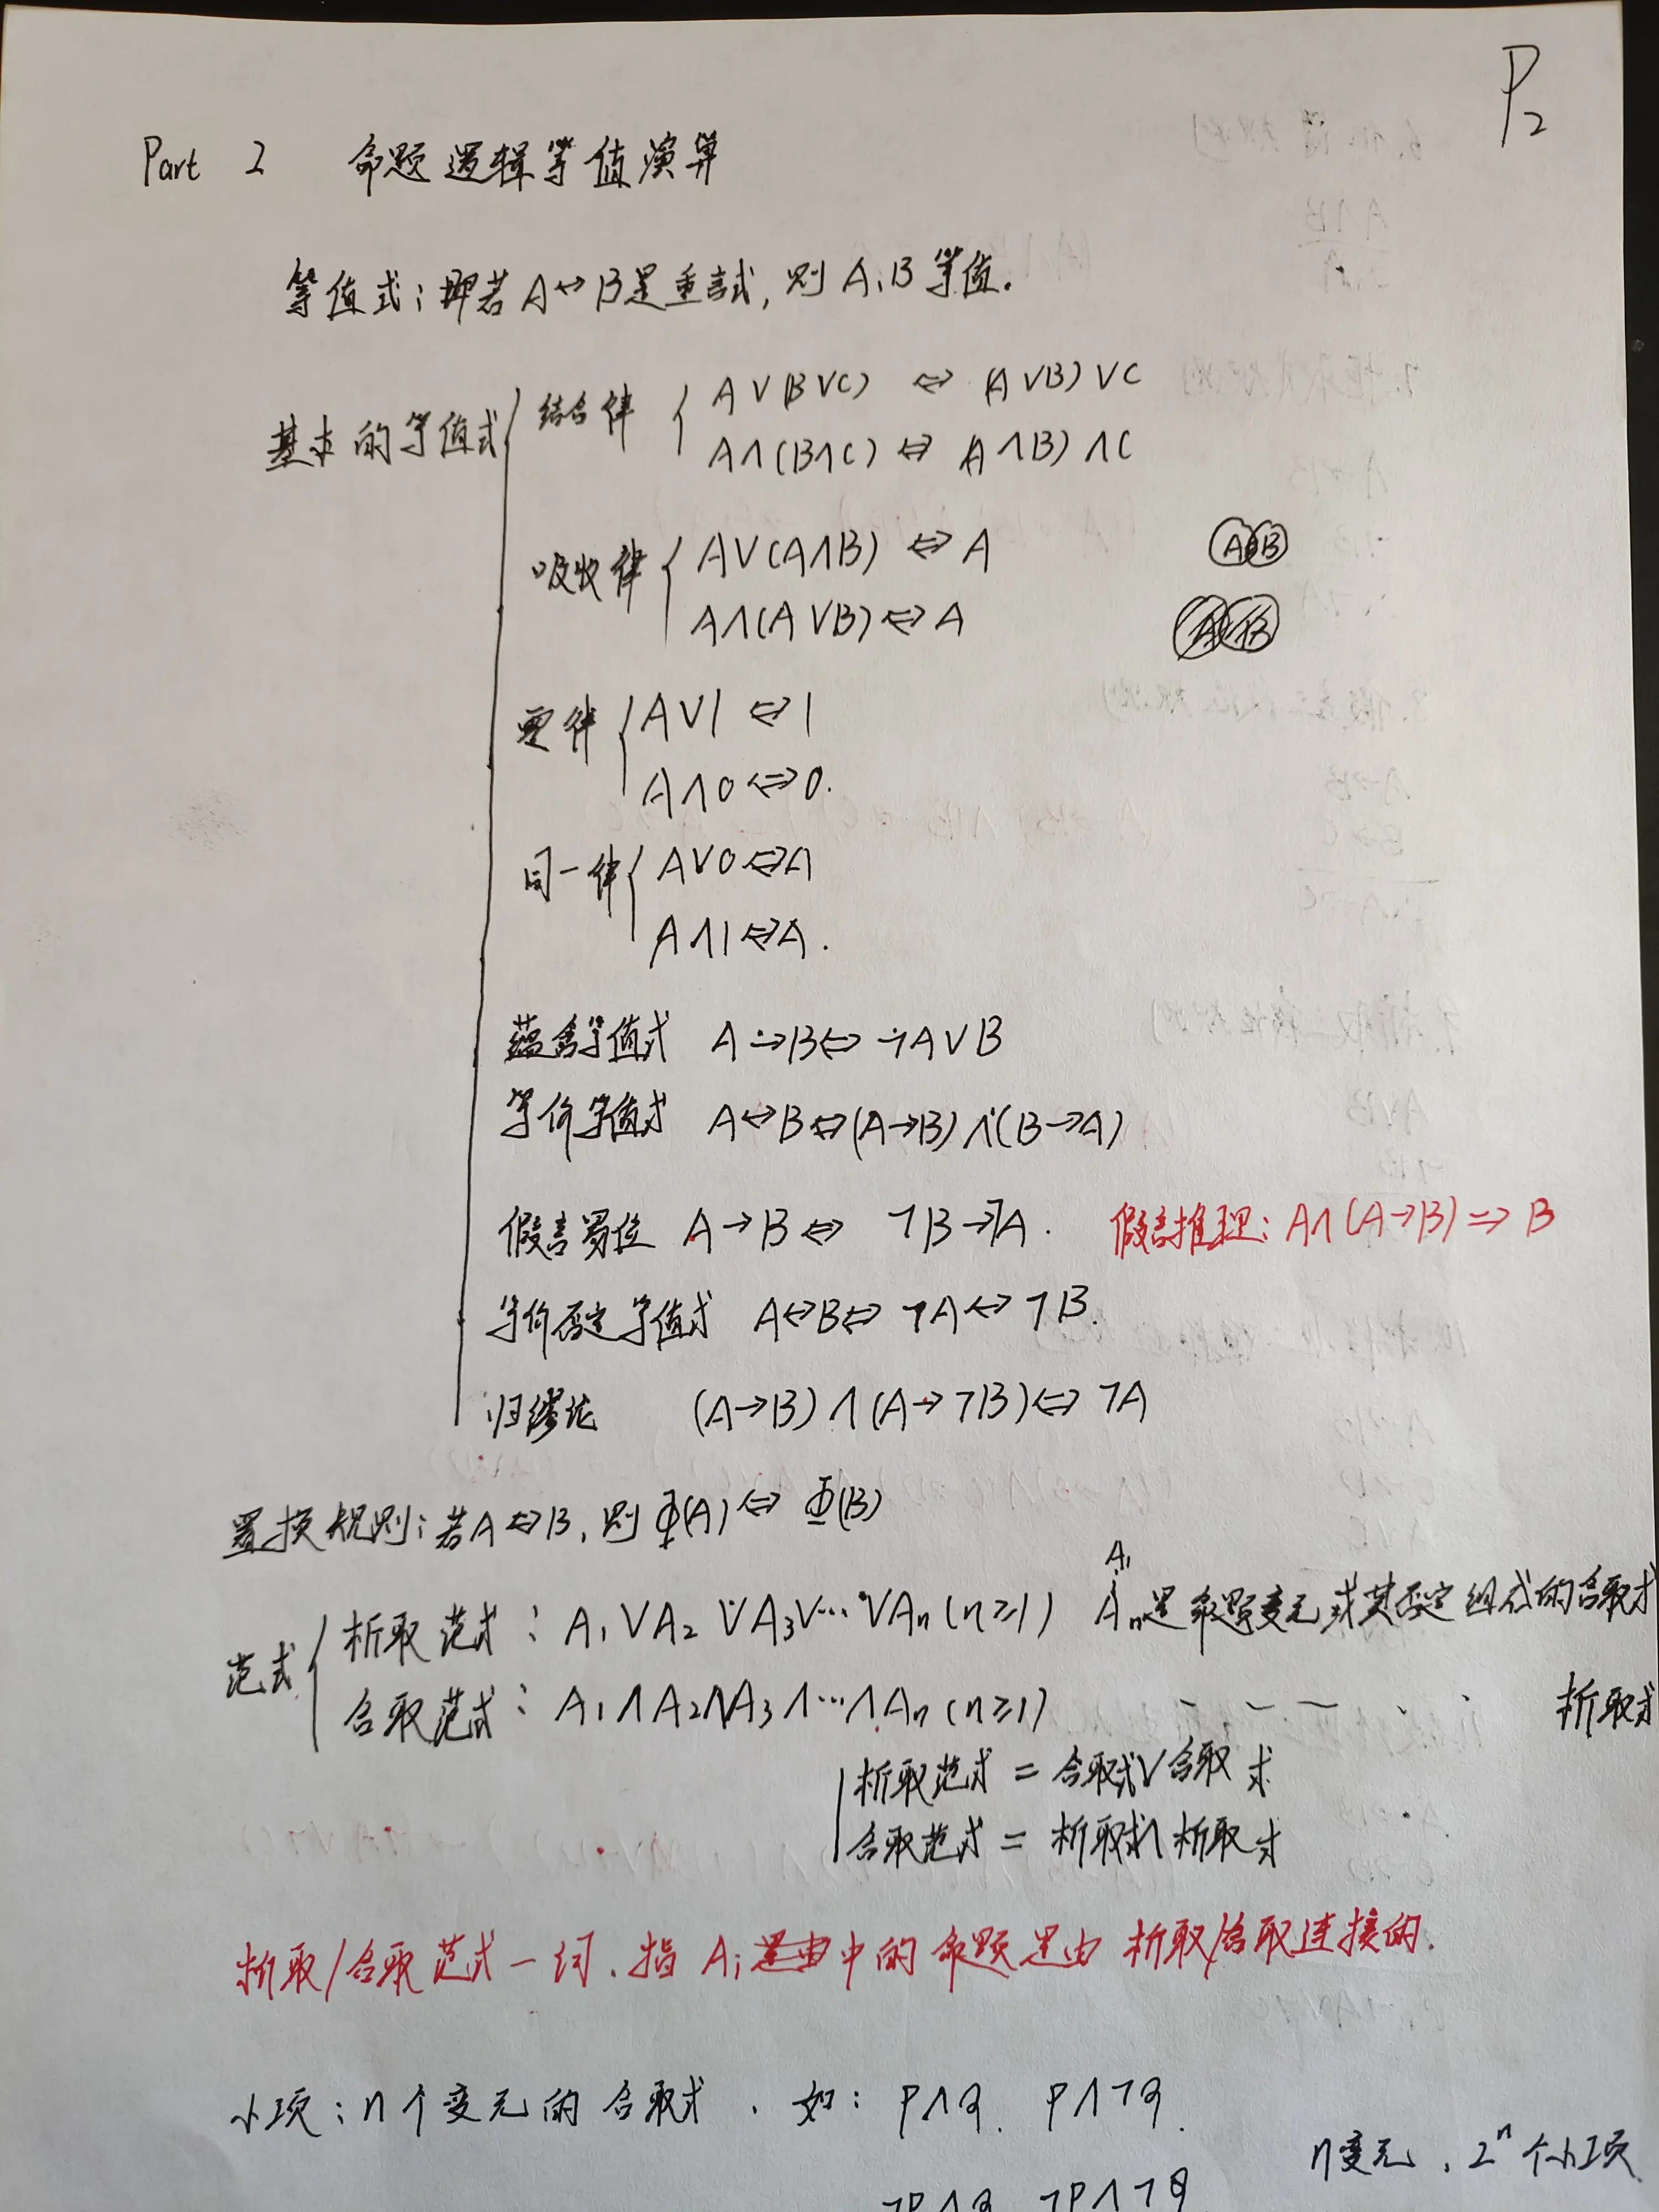 P2
Part 2 命题逻辑等值演算
等值式:即若A↔B是重言式,则A,B等值.
基本的等值式
结合律
A∨(B∨C) ⇔ (A∨B)∨C
A∧(B∧C) ⇔ (A∧B)∧C
吸收律
A∨(A∧B) ⇔ A
A∧(A∨B) ⇔ A
A B
A B
零律
A∨1 ⇔ 1
A∧0 ⇔ 0.
同一律
A∨0 ⇔ A
A∧1 ⇔ A.
蕴含等值式 A→B ⇔ ¬A∨B
等价等值式 A↔B ⇔ (A→B)∧(B→A)
假言易位 A→B ⇔ ¬B→¬A. 假言推理: A∧(A→B) ⇒ B
等价否定等值式 A↔B ⇔ ¬A↔¬B.
归缪论 (A→B)∧(A→¬B) ⇔ ¬A
置换规则:若A⇔B,则Φ(A) ⇔ Φ(B)
范式
A1
析取范式: A1∨A2∨A3∨…∨An (n≥1) An是命题变元或其否定组成的合取式
合取范式: A1∧A2∧A3∧…∧An (n≥1) 析取式
析取范式 = 合取式∨合取式
合取范式 = 析取式∧析取式
析取/合取范式一词.指Ai中的命题是由析取/合取连接的.
小项:n个变元的合取式.如: P∧q. P∧¬q.
n变元.2^n个小项
¬P∧q ¬P∧¬q